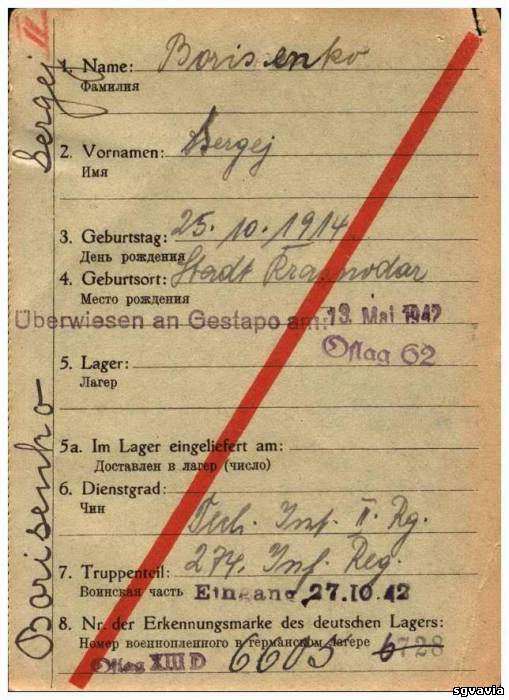 II
Sergej
Borisenko
1. Name: Borisenko
Фамилия
2. Vornamen: Sergej
Имя
3. Geburtstag: 25. 10. 1914
День рождения
4. Geburtsort: Stadt Krasnodar
Место рождения
Überwiesen an Gestapo am: 13. Mai 1942
Oflag 62
5. Lager:
Лагерь
5a. Im Lager eingeliefert am:
Доставлен в лагерь (число)
6. Dienstgrad:
Чин
Tech. Int. II. Rg.
7. Truppenteil: 274. Inf. Reg.
Воинская часть Eingang 27.10.42
8. Nr. der Erkennungsmarke des deutschen Lagers:
Номер военнопленного в германском лагере 6728
Oflag XIII D 6605
sgvavia